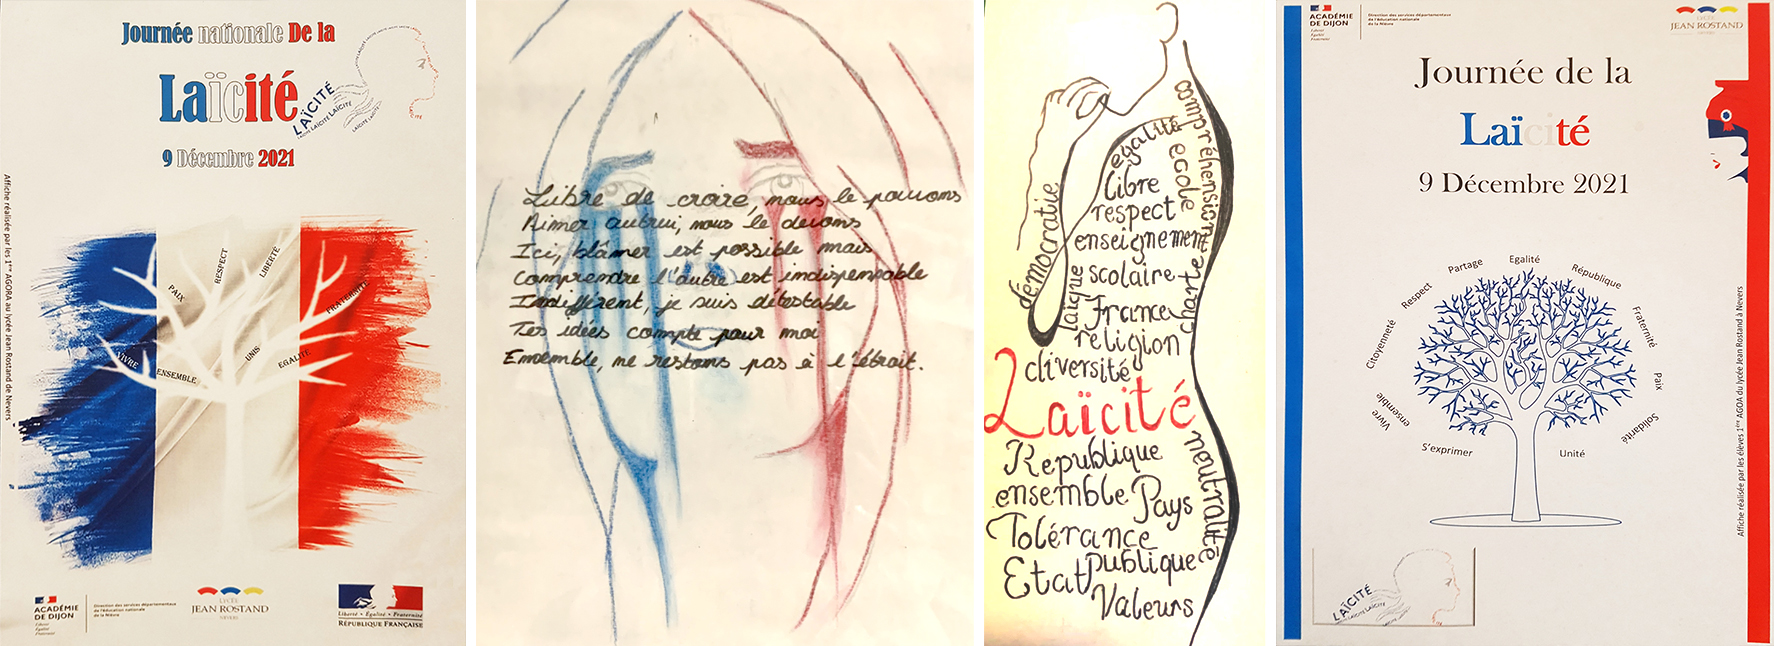 Journée nationale De la
Laïcité
9 Décembre 2021
LAÏCITÉ
LAÏCITÉ LAÏCITÉ
LAÏCITÉ
Affiche réalisée par les 1ère AGORA au lycée Jean Rostand de Nevers
PAIX
RESPECT
LIBERTÉ
FRATERNITÉ
VIVRE
ENSEMBLE
UNIS
EGALITÉ
ACADÉMIE
DE DIJON
Liberté
Égalité
Fraternité
Direction des services départementaux
de l'éducation nationale
de la Nièvre
LYCÉE
JEAN ROSTAND
NEVERS
Liberté • Égalité • Fraternité
RÉPUBLIQUE FRANÇAISE
Libre de croire, nous le pouvons
Aimer autrui, nous le devons
Ici, blâmer est possible mais
Comprendre l'autre est indispensable
Indifférent, je suis détestable
Tes idées compte pour moi
Ensemble, ne restons pas à l'étroit.
compréhension
égalité
école
démocratie
libre
respect
enseignement
laïque
scolaire
charte
France
religion
diversité
Laïcité
neutralité
République
ensemble Pays
Tolérance
Etat publique
Valeurs
ACADÉMIE
DE DIJON
Liberté
Égalité
Fraternité
Direction des services départementaux
de l'éducation nationale
de la Nièvre
LYCÉE
JEAN ROSTAND
NEVERS
Journée de la
Laïcité
9 Décembre 2021
S'exprimer
Vivre ensemble
Citoyenneté
Respect
Partage
Egalité
République
Fraternité
Paix
Solidarité
Unité
Affiche réalisée par les élèves 1ère AGOA du lycée Jean Rostand à Nevers
LAÏCITÉ
LAÏCITÉ LAÏCITÉ